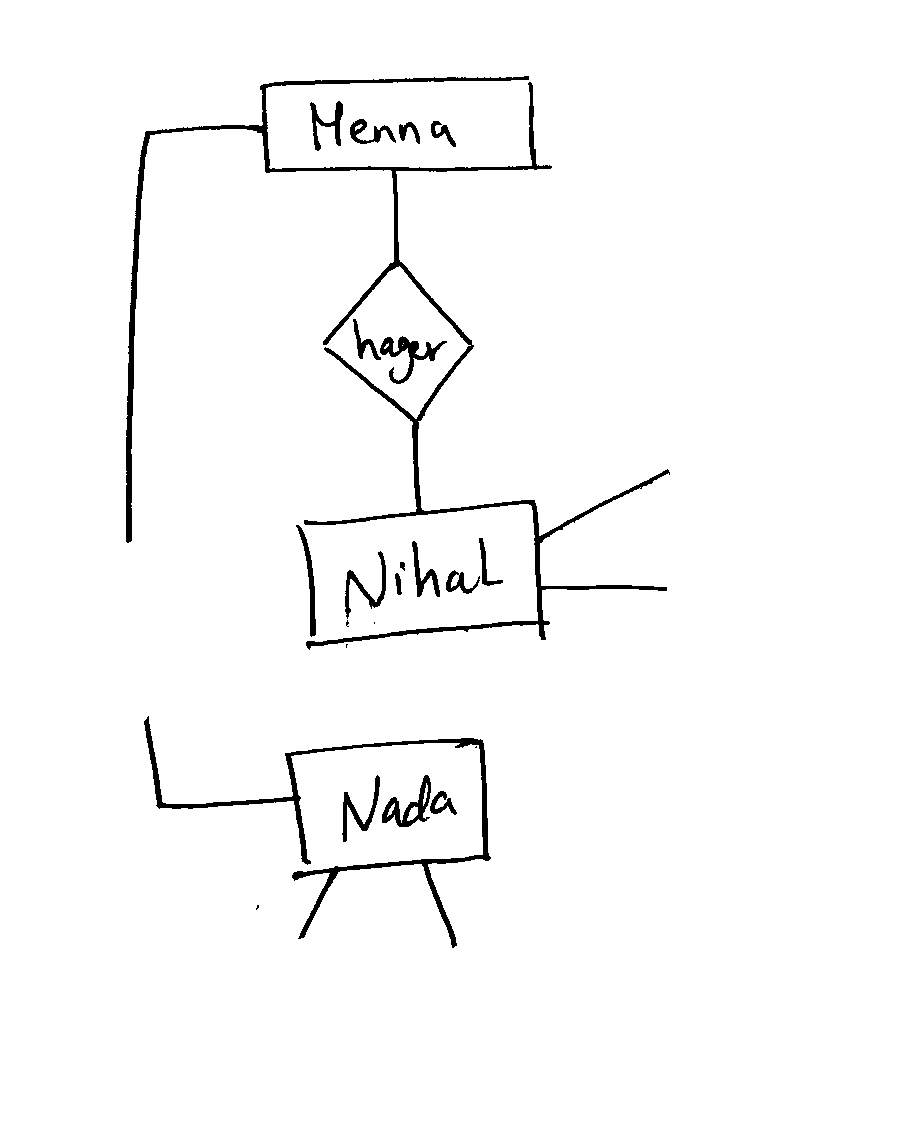 Menna
hager
Nihal
Nada